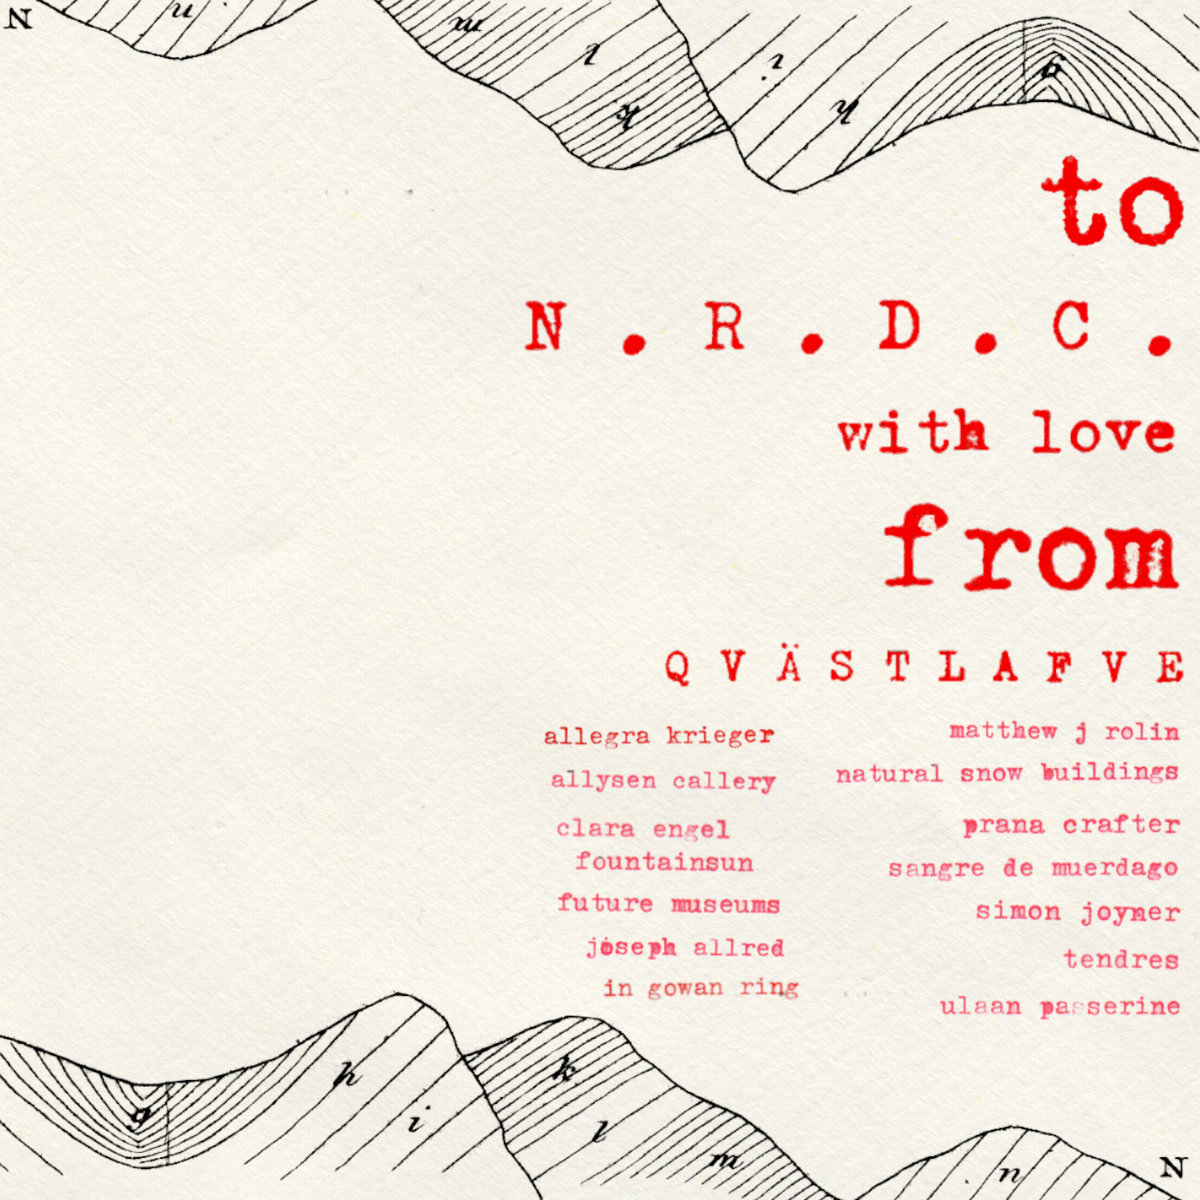 N u m l i k h g
to
N . R . D . C .
with love
from
QVÄSTLAFVE
allegra krieger
allysen callery
clara engel
fountainsun
future museums
joseph allred
in gowan ring
matthew j rolin
natural snow buildings
prana crafter
sangre de muerdago
simon joyner
tendres
ulaan passerine
g h i k l m n N